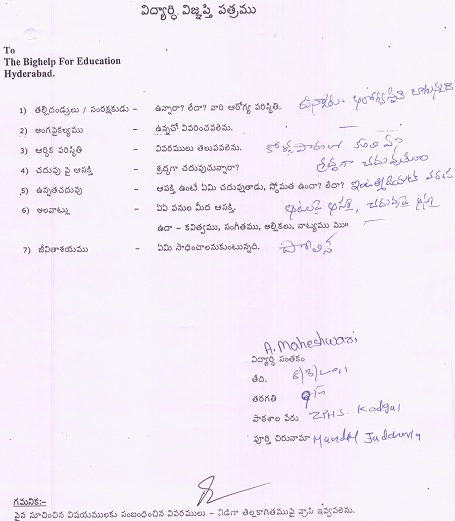 విద్యార్ధి విజ్ఞప్తి పత్రము
To
The Bighelp For Education
Hyderabad.
1) తల్లిదండ్రులు / సంరక్షకుడు – ఉన్నారా? లేదా? వారి ఆరోగ్య పరిస్థితి.
2) అంగవైకల్యము – ఉన్నచో వివరించవలెను.
3) ఆర్థిక పరిస్థితి – వివరములు తెలుపవలెను.
4) చదువు పై ఆసక్తి – శ్రద్ధగా చదువుచున్నారా? శ్రద్ధగా
5) ఉన్నతచదువు – ఆసక్తి ఉంటే ఏమి చదువుతాడు, స్తోమత ఉందా? లేదా?
6) అలవాట్లు – ఏఏ పనుల మీద ఆసక్తి.
ఉదా – కవిత్వము, సంగీతము, అల్లికలు, నాట్యము ము॥
7) జీవితాశయము – ఏమి సాధించాలనుకుంటున్నది. పోలీస్
A. Maheshwari
విద్యార్థి సంతకం
తేది. 8/3/2011
తరగతి 9th
పాఠశాల పేరు ZPHS. Kodgal
పూర్తి చిరునామా Mandal Jadcherla
గమనిక:-
పైన సూచించిన విషయములకు సంబంధించిన వివరములు – విడిగా తెల్లకాగితముపై వ్రాసి ఇవ్వవలెను.